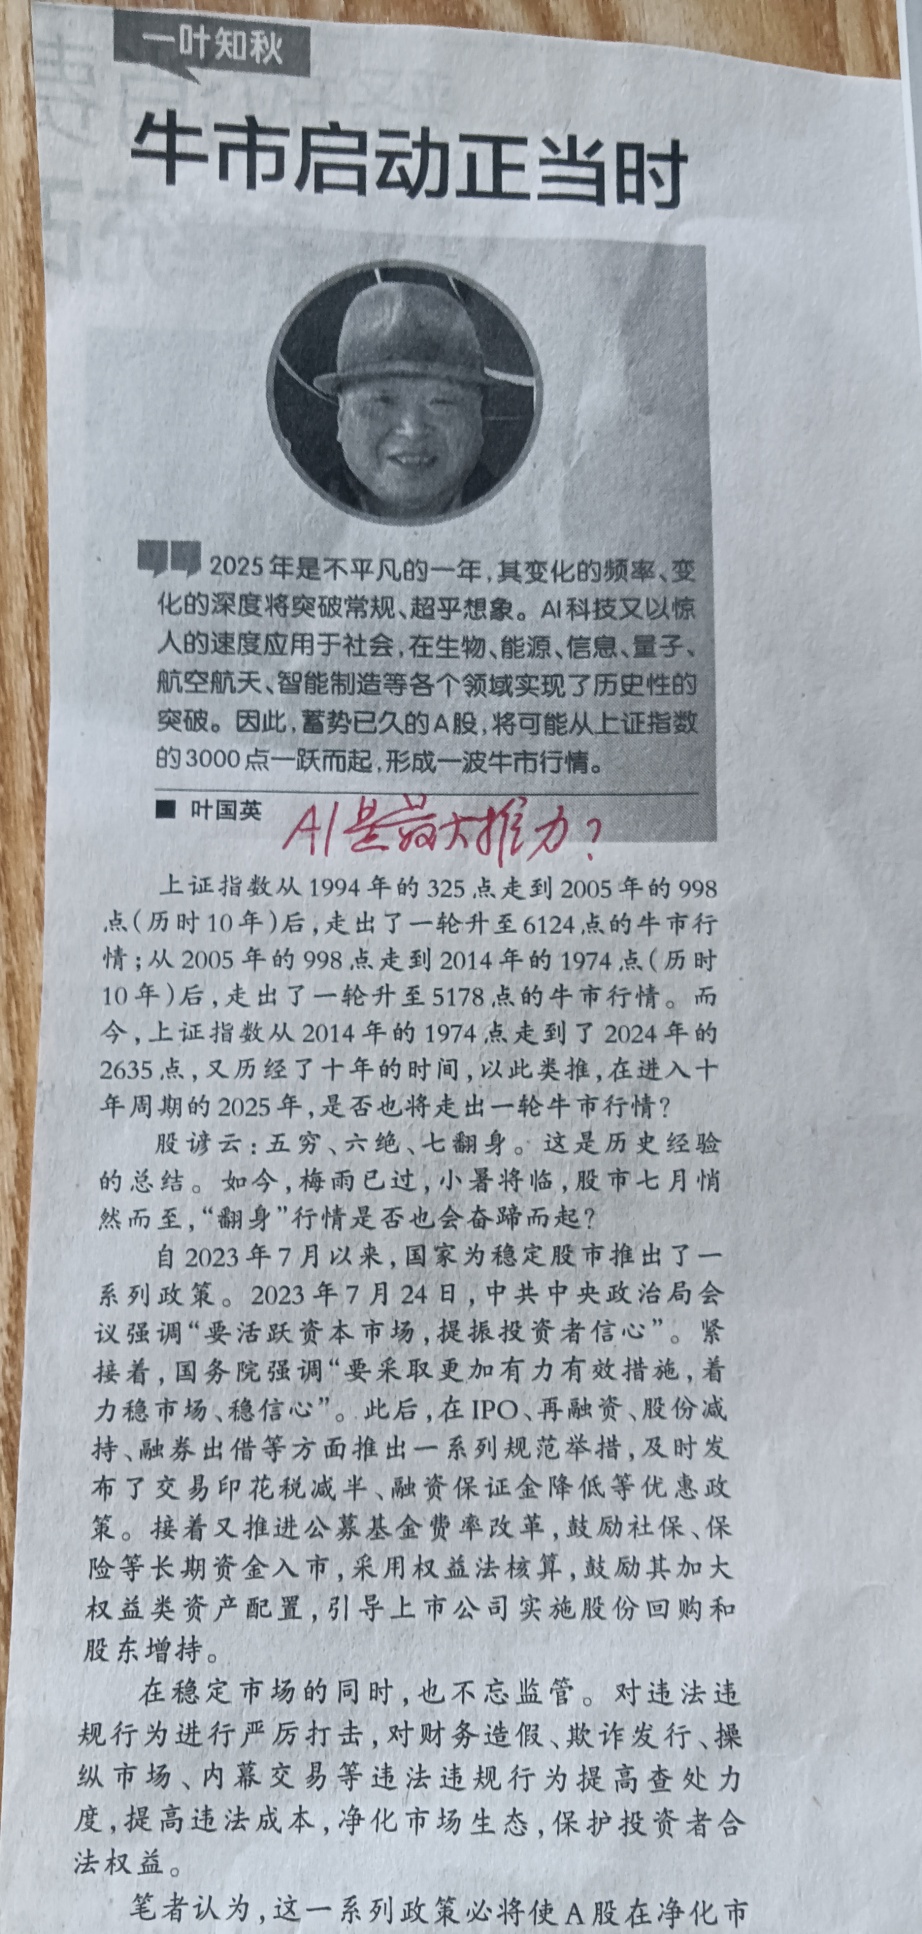 一叶知秋
牛市启动正当时
2025年是不平凡的一年,其变化的频率、变
化的深度将突破常规、超乎想象。AI科技又以惊
人的速度应用于社会,在生物、能源、信息、量子、
航空航天、智能制造等各个领域实现了历史性的
突破。因此,蓄势已久的A股,将可能从上证指数
的3000点一跃而起,形成一波牛市行情。
■ 叶国英
AI是最大推力?
上证指数从1994年的325点走到2005年的998
点(历时10年)后,走出了一轮升至6124点的牛市行
情;从2005年的998点走到2014年的1974点(历时
10年)后,走出了一轮升至5178点的牛市行情。而
今,上证指数从2014年的1974点走到了2024年的
2635点,又历经了十年的时间,以此类推,在进入十
年周期的2025年,是否也将走出一轮牛市行情?
股谚云:五穷、六绝、七翻身。这是历史经验
的总结。如今,梅雨已过,小暑将临,股市七月悄
然而至,“翻身”行情是否也会奋蹄而起?
自2023年7月以来,国家为稳定股市推出了一
系列政策。2023年7月24日,中共中央政治局会
议强调“要活跃资本市场,提振投资者信心”。紧
接着,国务院强调“要采取更加有力有效措施,着
力稳市场、稳信心”。此后,在IPO、再融资、股份减
持、融券出借等方面推出一系列规范举措,及时发
布了交易印花税减半、融资保证金降低等优惠政
策。接着又推进公募基金费率改革,鼓励社保、保
险等长期资金入市,采用权益法核算,鼓励其加大
权益类资产配置,引导上市公司实施股份回购和
股东增持。
在稳定市场的同时,也不忘监管。对违法违
规行为进行严厉打击,对财务造假、欺诈发行、操
纵市场、内幕交易等违法违规行为提高查处力
度,提高违法成本,净化市场生态,保护投资者合
法权益。
笔者认为,这一系列政策必将使A股在净化市